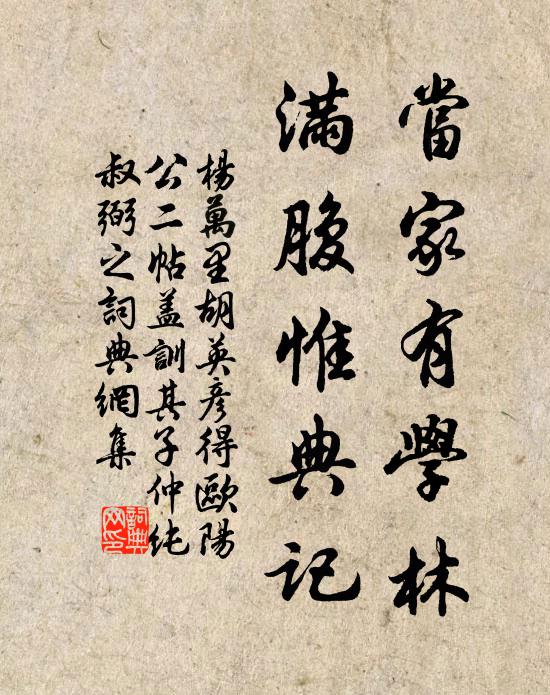 當家有學林
滿腹惟典記
楊萬里胡英彥得歐陽
公二帖蓋訓其子仲純
叔弼之詞典網集
詞典
网印